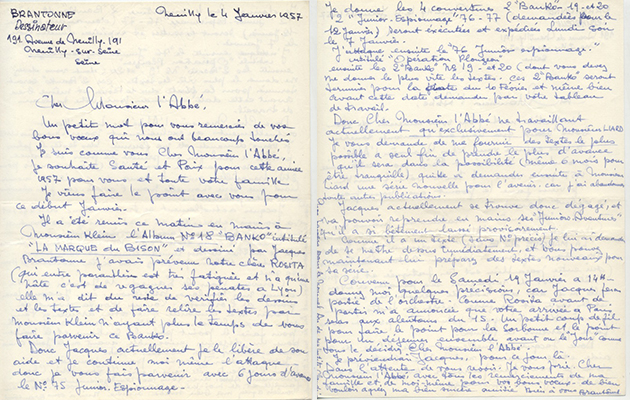 BRANTONNE
Dessinateur
191 Avenue de Neuilly. 191
Neuilly-sur-Seine
Seine
Neuilly le 4 Janvier 1957
Cher Monsieur l'Abbé,
Un petit mot pour vous remercier de vos
bons vœux qui nous ont beaucoup touchés
Je suis comme vous Cher Monsieur l'Abbé,
je souhaite Santé et Paix pour cette année
1957 pour vous et toute votre famille
Je viens faire le point avec vous pour
ce début Janvier.
Il a été remis ce matin en mains à
Monsieur Klein l'Album Nº 18 "BANKO" intitulé
"LA MARQUE du BISON" et dessiné Jacques
Brantonne j'avais prévenu notre chère ROSITA
(qui entre parenthèses est très fatiguée et n'a qu'une
hâte c'est de regagner ses pénates à Lyon)
elle m'a dit du reste de vérifier les dessins
et les textes et de faire relire les textes par
Monsieur Klein n'ayant plus le temps de vous
faire parvenir ce Banko.
Donc Jacques actuellement je le libère de son
aide et je continue moi même l'attaque
donc je vous fais parvenir avec 6 jours d'avance
le Nº 75 Junior. Espionnage.
Je donne les 4 couvertures 2 "Banko" 19 et 20
2 "Junior Espionnage" 76-77 (demandées pour le
12 Janvier) seront exécutées et expédiées Lundi soir
le 7 Janvier.
J'attaque ensuite le "76 Junior espionnage."
intitulé "Opération Plongeon"
ensuite les 2 "Banko" Nº 19 et 20 (dont vous devez
me donner le plus vite les textes. Ces 2 "Banko" seront
terminés pour la date du 10 Février et même bien
avant cette date demandée par votre tableau
de travail.
Donc Cher Monsieur l'Abbé ne travaillant
actuellement qu'exclusivement pour Monsieur
Je vous demande de me fournir des textes le plus
possible à seul fin de prendre le plus d'avance
que je serai à la possibilité (même 6 mois pour
être tranquille) quitte à demander ensuite à Monsieur
une série nouvelle pour l'avenir. car j'ai abandonné
toute autre publication.
Jacques actuellement se trouve donc dégagé, et
va pouvoir reprendre en mains ses "Junior Aventures"
qu'il a si bêtement laissé provisoirement
Comme il a un texte (sans Nº précis) je lui ai demandé
de se mettre à vous
maintenant lui préparer des textes nouveaux pour
sa série.
Convenu pour le Samedi 19 Janvier à 14H
donnez moi quelques précisions car Jacques fera
partie de l'orchestre. Comme Rosita avant de
partir m'a annoncé que votre arrivée à Paris
sera aux alentours du 15. Un petit coup de fil
pour faire le point pour la Sorbonne et le point
pour un déjeuner ensemble avant ou le jour comme
vous le décidez Cher Monsieur l'Abbé.
Je préviendrai Jacques pour ce jour là.
Dans l'attente de vous revoir. Je vous prie. Cher
Monsieur l'Abbé avec tous les remerciements de ma
famille et de moi-même pour vos bons vœux de bien
vouloir agréer ma bien sincère amitié. Bien à vous Brantonne